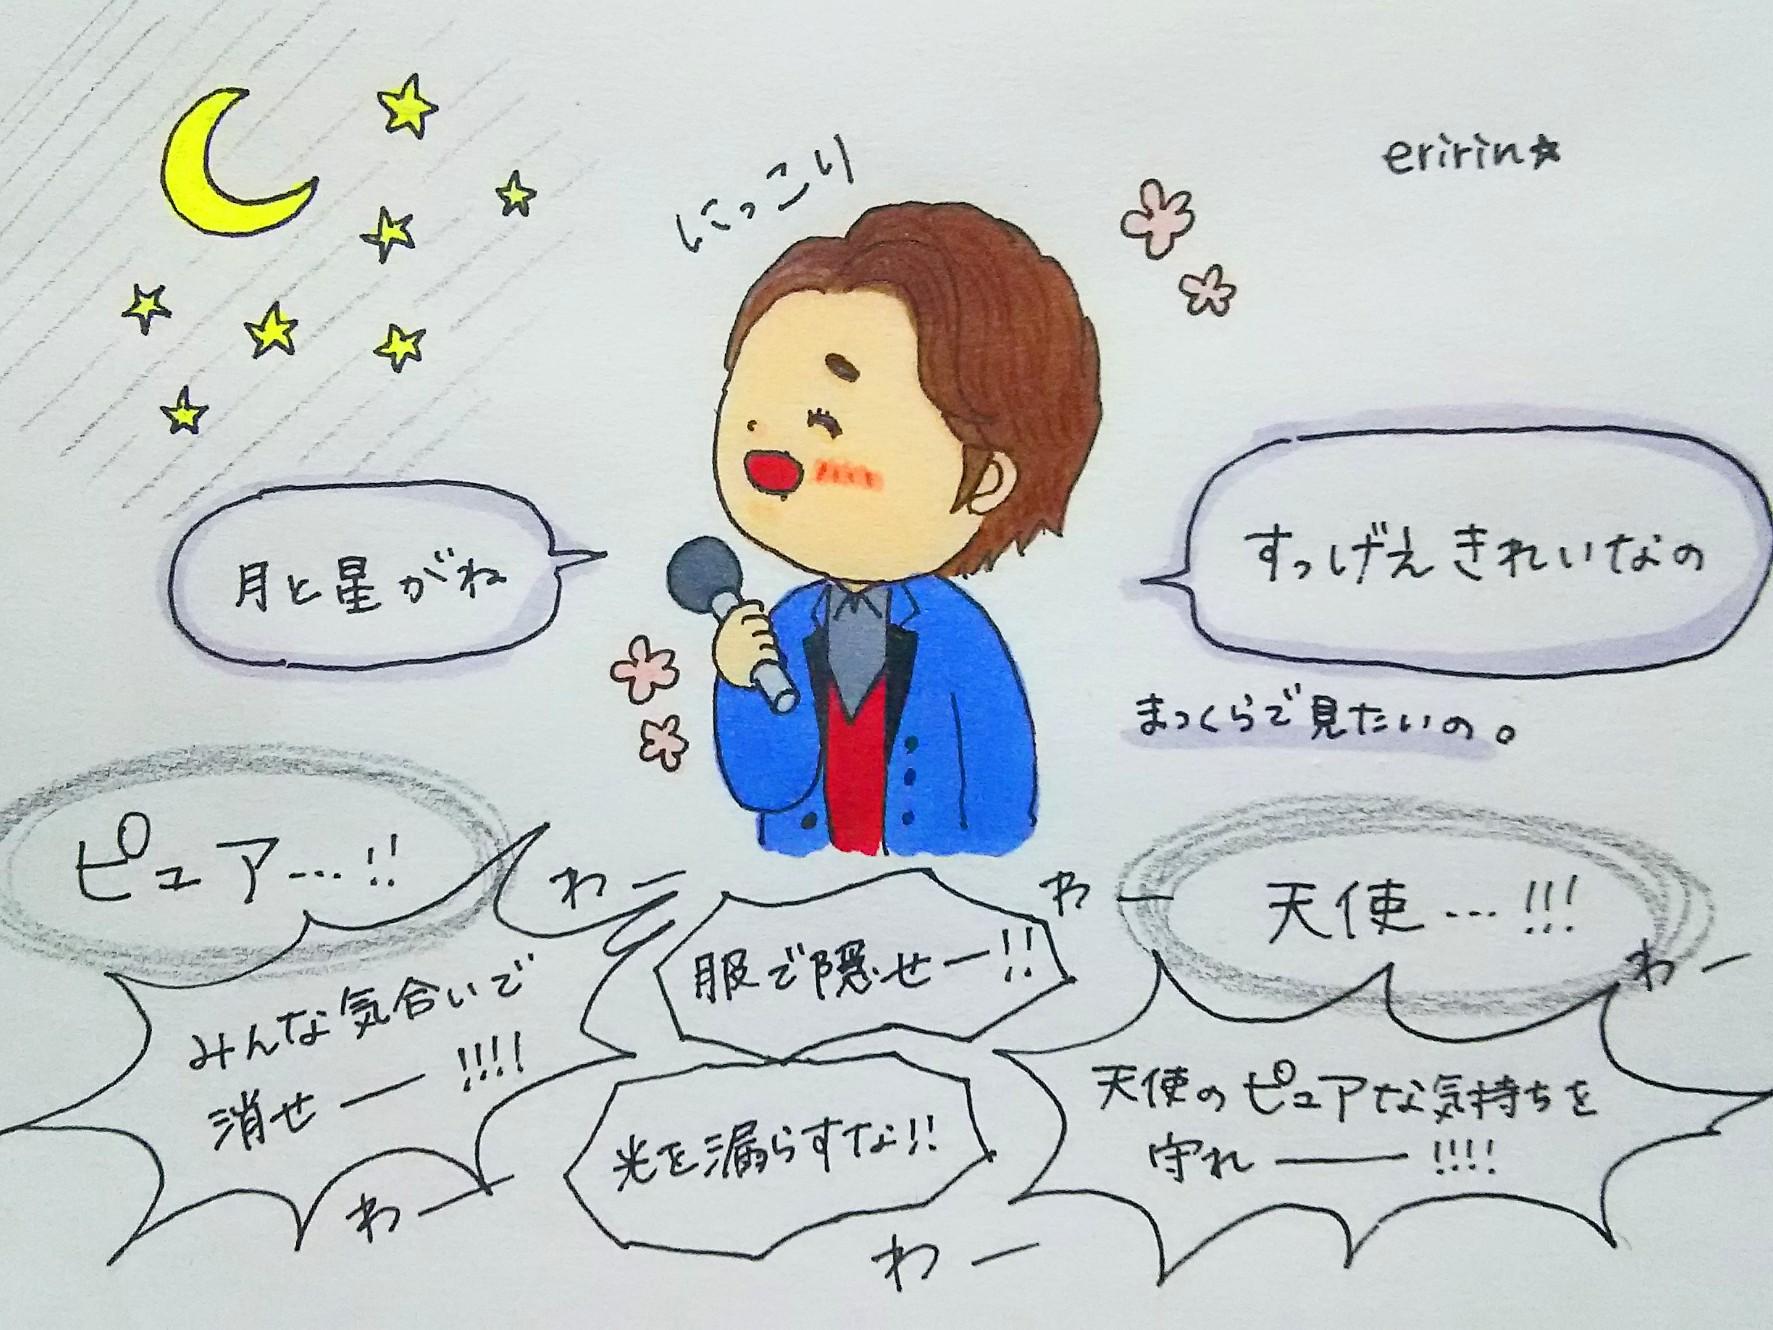 eririn☆
にっこり
月と星がね
すっげえきれいなの
まっくらで見たいの。
ピュア…!!
天使…!!!
わー
わー
わー
服で隠せー!!
みんな気合いで
消せー!!!!
天使のピュアな気持ちを
守れー!!!!
光を漏らすな!!
わー
わー